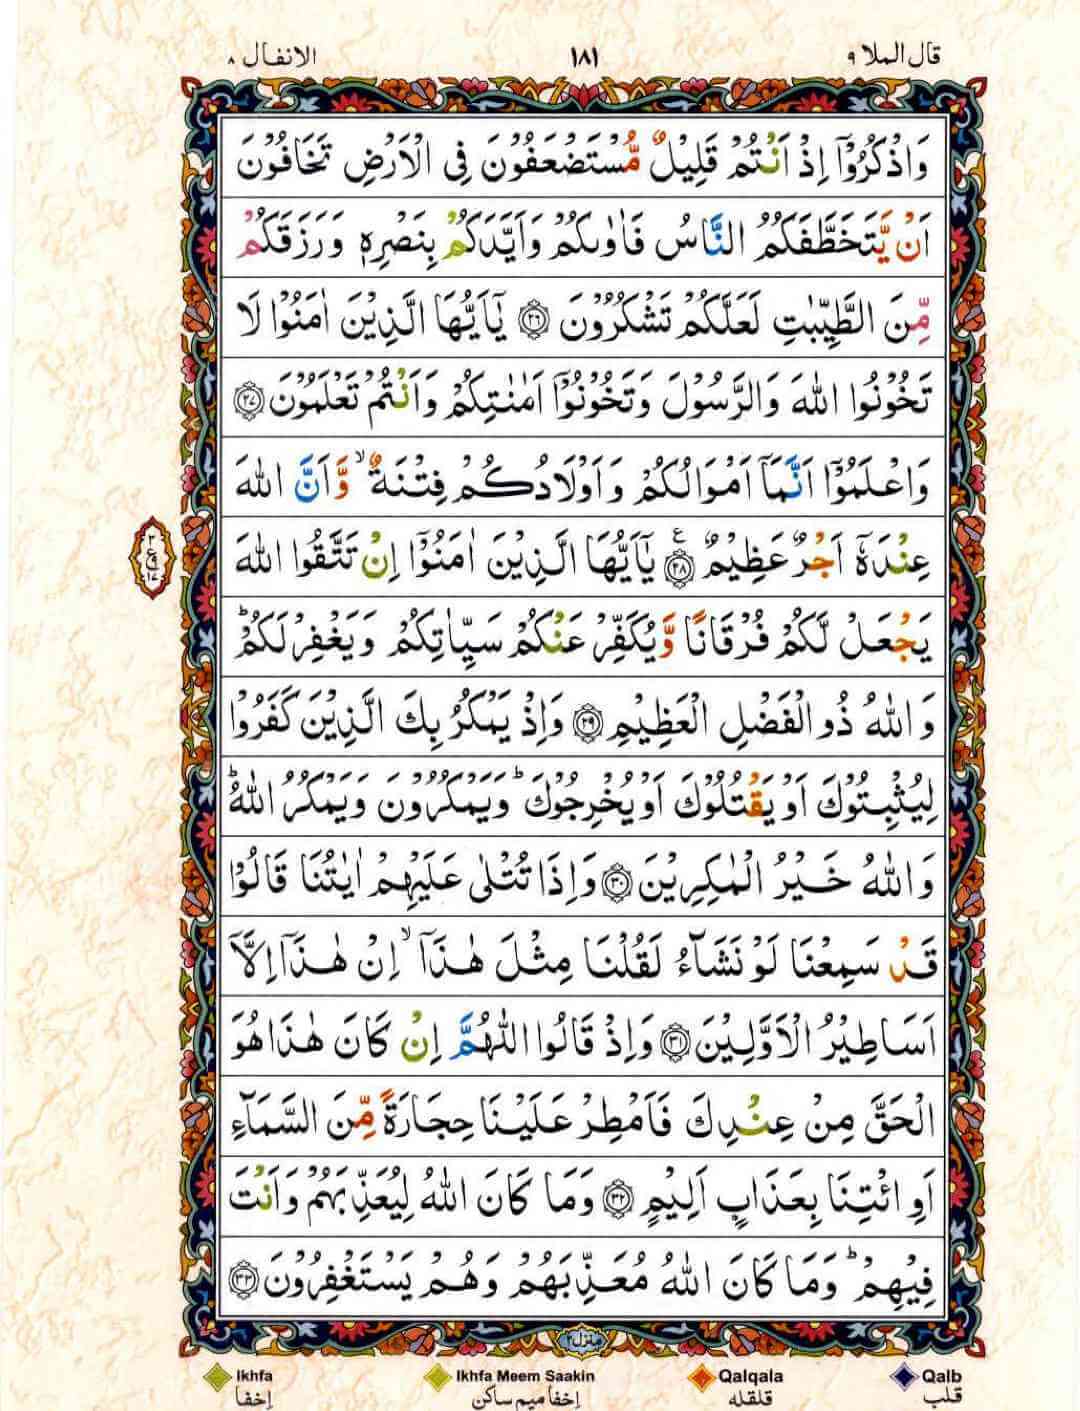 قال الملا ۹ ۱۸۱ الانفال ۸
وَاذْكُرُوْۤا اِذْ اَنْتُمْ قَلِيْلٌ مُّسْتَضْعَفُوْنَ فِى الْاَرْضِ تَخَافُوْنَ
اَنْ يَّتَخَطَّفَكُمُ النَّاسُ فَاٰوٰىكُمْ وَاَيَّدَكُمْ بِنَصْرِهٖ وَرَزَقَكُمْ
مِّنَ الطَّيِّبٰتِ لَعَلَّكُمْ تَشْكُرُوْنَ ﴿۲۶﴾ يٰۤاَيُّهَا الَّذِيْنَ اٰمَنُوْا لَا
تَخُوْنُوا اللّٰهَ وَالرَّسُوْلَ وَتَخُوْنُوْۤا اَمٰنٰتِكُمْ وَاَنْتُمْ تَعْلَمُوْنَ ﴿۲۷﴾
وَاعْلَمُوْۤا اَنَّمَاۤ اَمْوَالُكُمْ وَاَوْلَادُكُمْ فِتْنَةٌ ۙ وَّاَنَّ اللّٰهَ
عِنْدَهٗۤ اَجْرٌ عَظِيْمٌ ﴿۲۸﴾ ع يٰۤاَيُّهَا الَّذِيْنَ اٰمَنُوْۤا اِنْ تَتَّقُوا اللّٰهَ
يَجْعَلْ لَّكُمْ فُرْقَانًا وَّيُكَفِّرْ عَنْكُمْ سَيِّاٰتِكُمْ وَيَغْفِرْ لَكُمْ ؕ
وَاللّٰهُ ذُو الْفَضْلِ الْعَظِيْمِ ﴿۲۹﴾ وَاِذْ يَمْكُرُ بِكَ الَّذِيْنَ كَفَرُوْا
لِيُثْبِتُوْكَ اَوْ يَقْتُلُوْكَ اَوْ يُخْرِجُوْكَ ؕ وَيَمْكُرُوْنَ وَيَمْكُرُ اللّٰهُ ؕ
وَاللّٰهُ خَيْرُ الْمٰكِرِيْنَ ﴿۳۰﴾ وَاِذَا تُتْلٰى عَلَيْهِمْ اٰيٰتُنَا قَالُوْا
قَدْ سَمِعْنَا لَوْ نَشَآءُ لَقُلْنَا مِثْلَ هٰذَاۤ ۙ اِنْ هٰذَاۤ اِلَّاۤ
اَسَاطِيْرُ الْاَوَّلِيْنَ ﴿۳۱﴾ وَاِذْ قَالُوا اللّٰهُمَّ اِنْ كَانَ هٰذَا هُوَ
الْحَقَّ مِنْ عِنْدِكَ فَاَمْطِرْ عَلَيْنَا حِجَارَةً مِّنَ السَّمَآءِ
اَوِ ائْتِنَا بِعَذَابٍ اَلِيْمٍ ﴿۳۲﴾ وَمَا كَانَ اللّٰهُ لِيُعَذِّبَهُمْ وَاَنْتَ
فِيْهِمْ ؕ وَمَا كَانَ اللّٰهُ مُعَذِّبَهُمْ وَهُمْ يَسْتَغْفِرُوْنَ ﴿۳۳﴾
منزل ۲
Ikhfa Ikhfa Meem Saakin Qalqala Qalb
إخفا إخفا ميم ساكن قلقله قلب